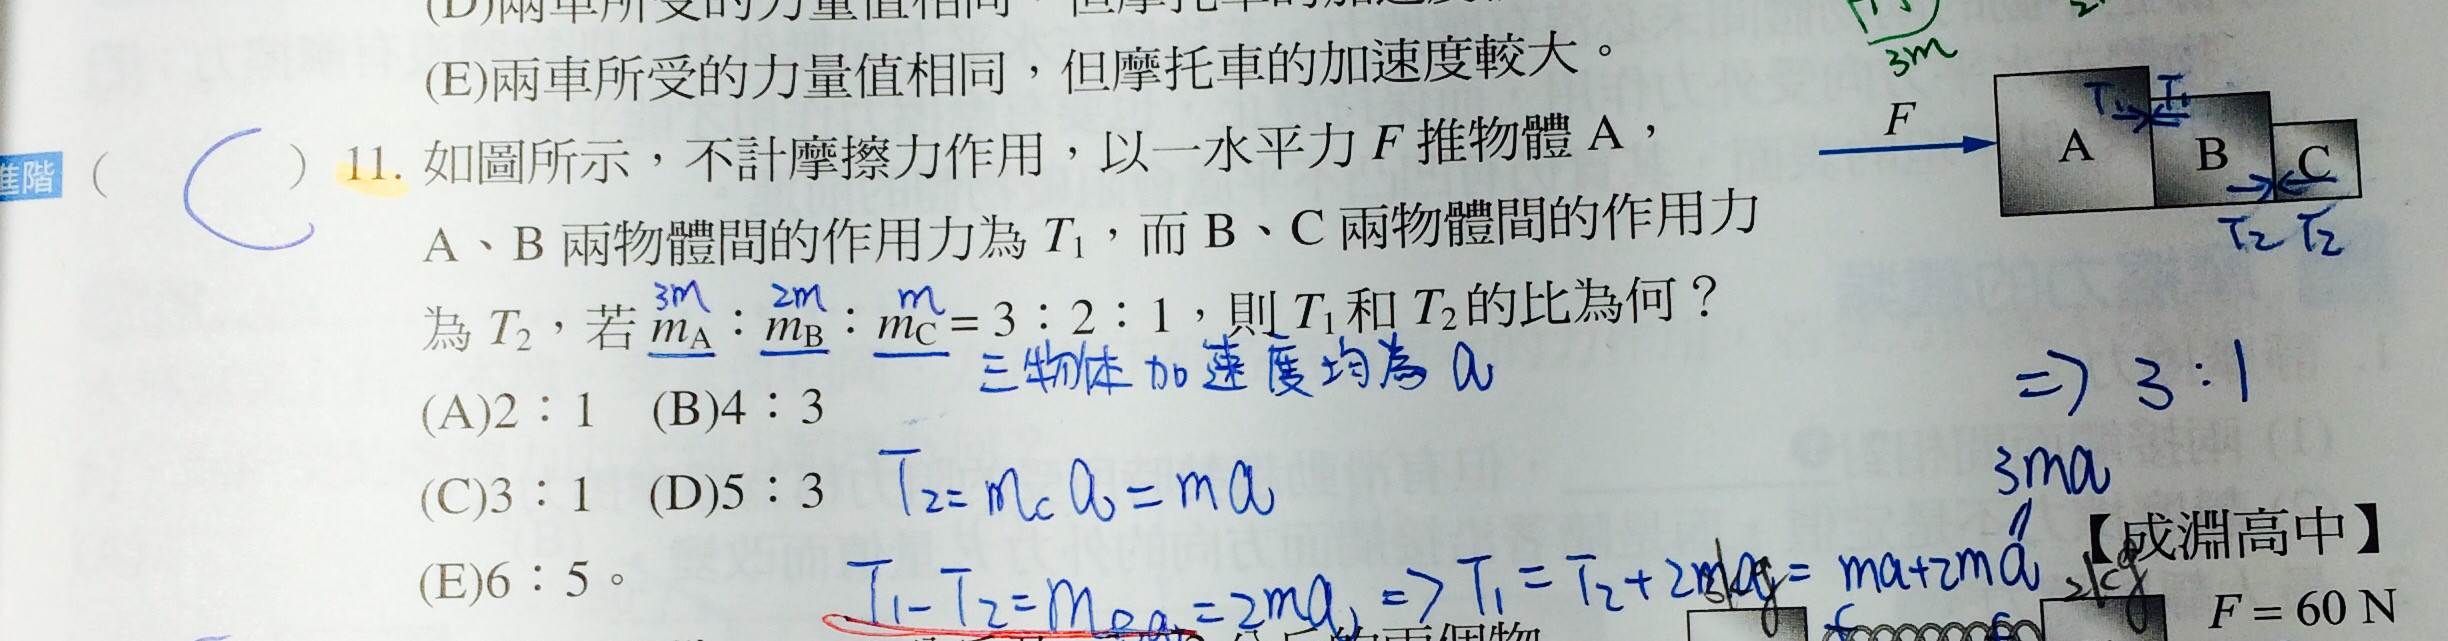 (D)兩車所受的力量值相同,但摩托車的加速度
(E)兩車所受的力量值相同,但摩托車的加速度較大。
3m
進階 ( C ) 11. 如圖所示,不計摩擦力作用,以一水平力 F 推物體 A,
A、B 兩物體間的作用力為 T₁,而 B、C 兩物體間的作用力
3m 2m m
為 T₂,若 mA:mB:mC = 3:2:1,則 T₁ 和 T₂ 的比為何?
三物体加速度均為 a
(A)2:1 (B)4:3
(C)3:1 (D)5:3
(E)6:5。
F
T₁ T₁
A B C
T₂ T₂
=> 3:1
T₂ = mc a = ma
3ma
T₁ - T₂ = mB a = 2ma => T₁ = T₂ + 2ma = ma + 2ma
【成淵高中】
2kg
F = 60 N